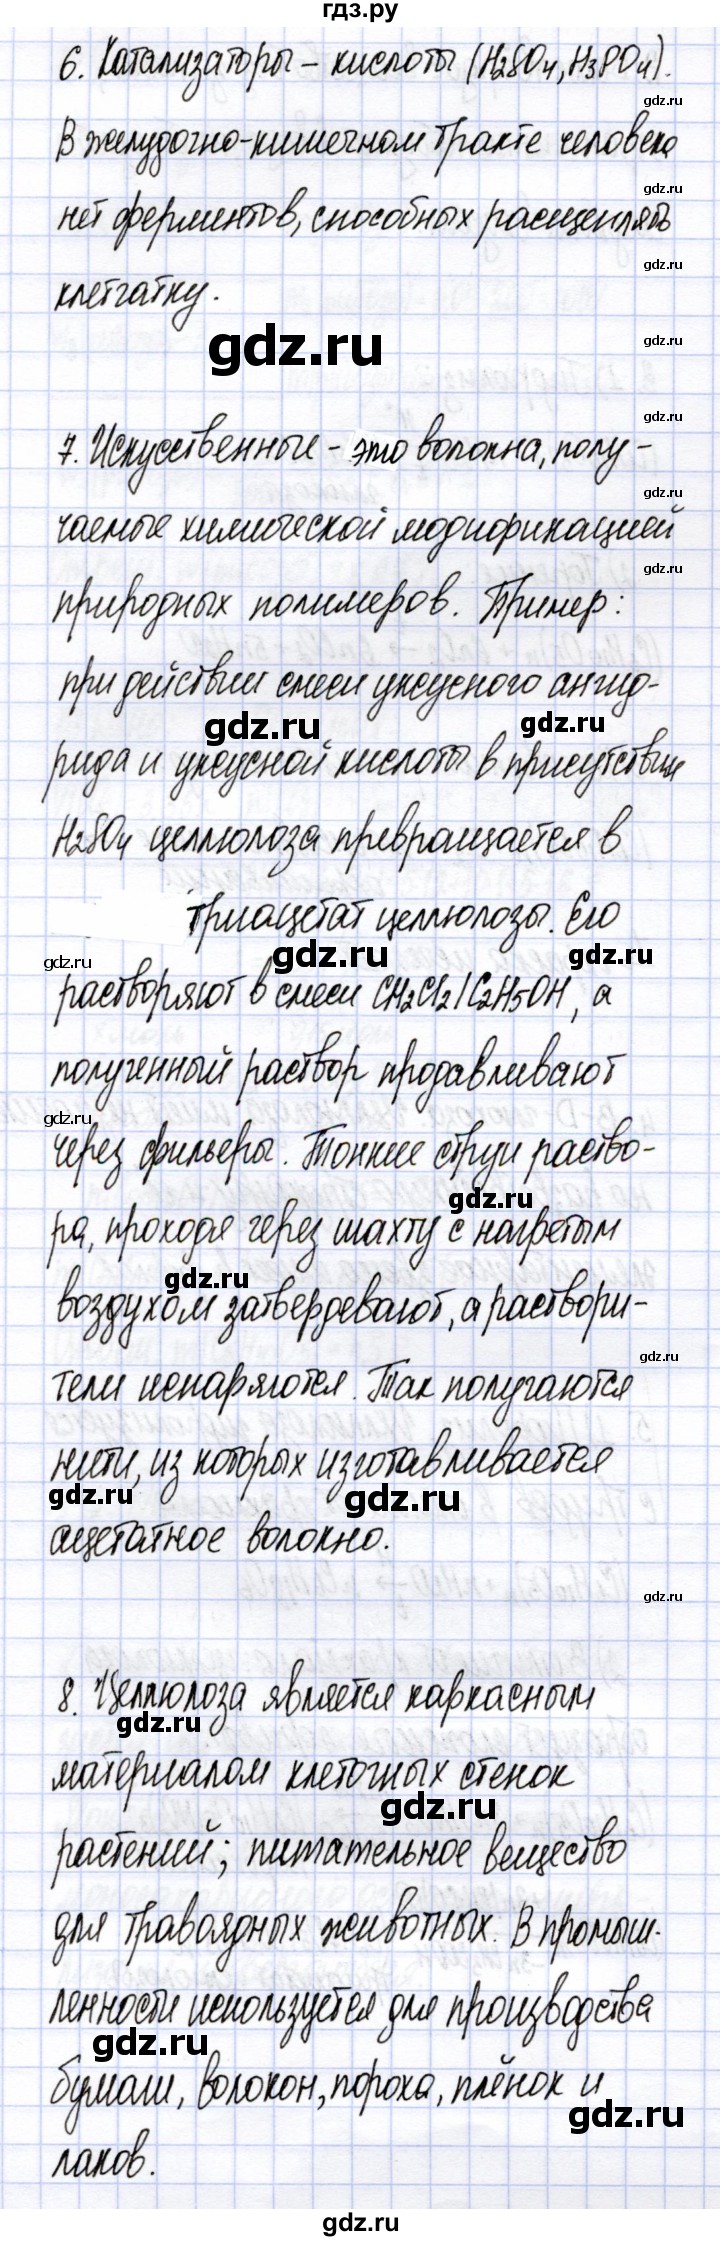 гдз.ру
6. Катализаторы – кислоты (H2SO4, H3PO4).
gdz.ru
В желудочно-кишечном тракте человека
gdz.ru
нет ферментов, способных расщеплять
gdz.ru
клетчатку.
gdz.ru
gdz.ru
gdz.ru
7. Искусственные – это волокна, полу-
gdz.ru
чаемые химической модификацией
gdz.ru
природных полимеров. Пример:
при действии смеси уксусного ангид-
gdz.ru
gdz.ru
рида и уксусной кислоты в присутствии
H2SO4 целлюлоза превращается в
триацетат целлюлозы. Его
gdz.ru
gdz.ru
gdz.ru
растворяют в смеси CH2Cl2/C2H5OH, а
полученный раствор продавливают
через фильеры. Тонкие струи раство-
gdz.ru
ра, проходя через шахту с нагретым
gdz.ru
воздухом затвердевают, а раствори-
gdz.ru
тели испаряются. Так получаются
нити, из которых изготавливается
gdz.ru
gdz.ru
ацетатное волокно.
gdz.ru
8. Целлюлоза является каркасным
gdz.ru
материалом клеточных стенок
gdz.ru
растений; питательное вещество
для травоядных животных. В промыш-
ленности используется для производства
gdz.ru
бумаги, волокон, пороха, плёнок и
gdz.ru
лаков.
gdz.ru